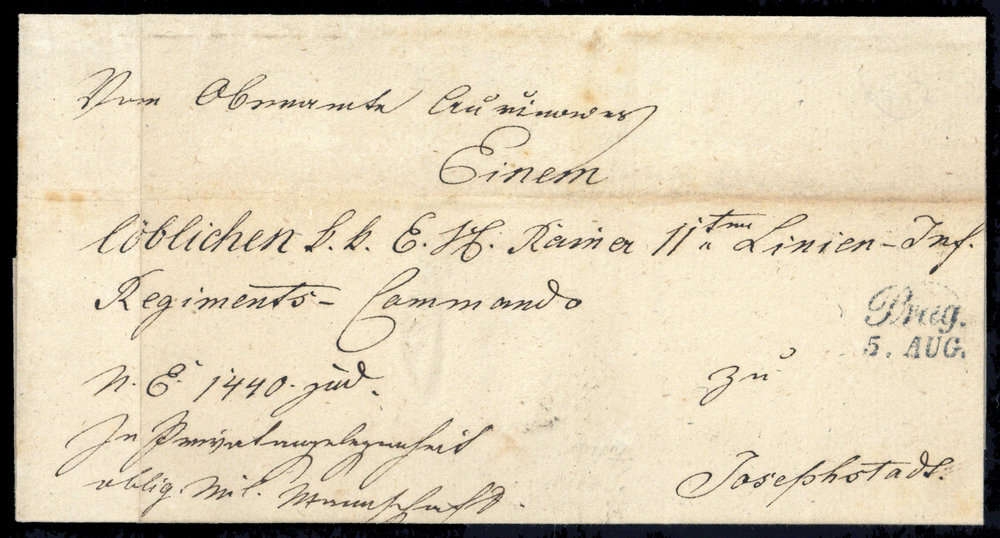 Vom Oberamte Auřinowes
Einem
löblichen k. k. E. H. Rainer 11ten Linien-Inf.
Regiments-Commando
Prag.
5. AUG.
N. E. 1440. jud.
zu
In Privatangelegenheit
oblig. Mil. Mannschaft.
Josephstadt.